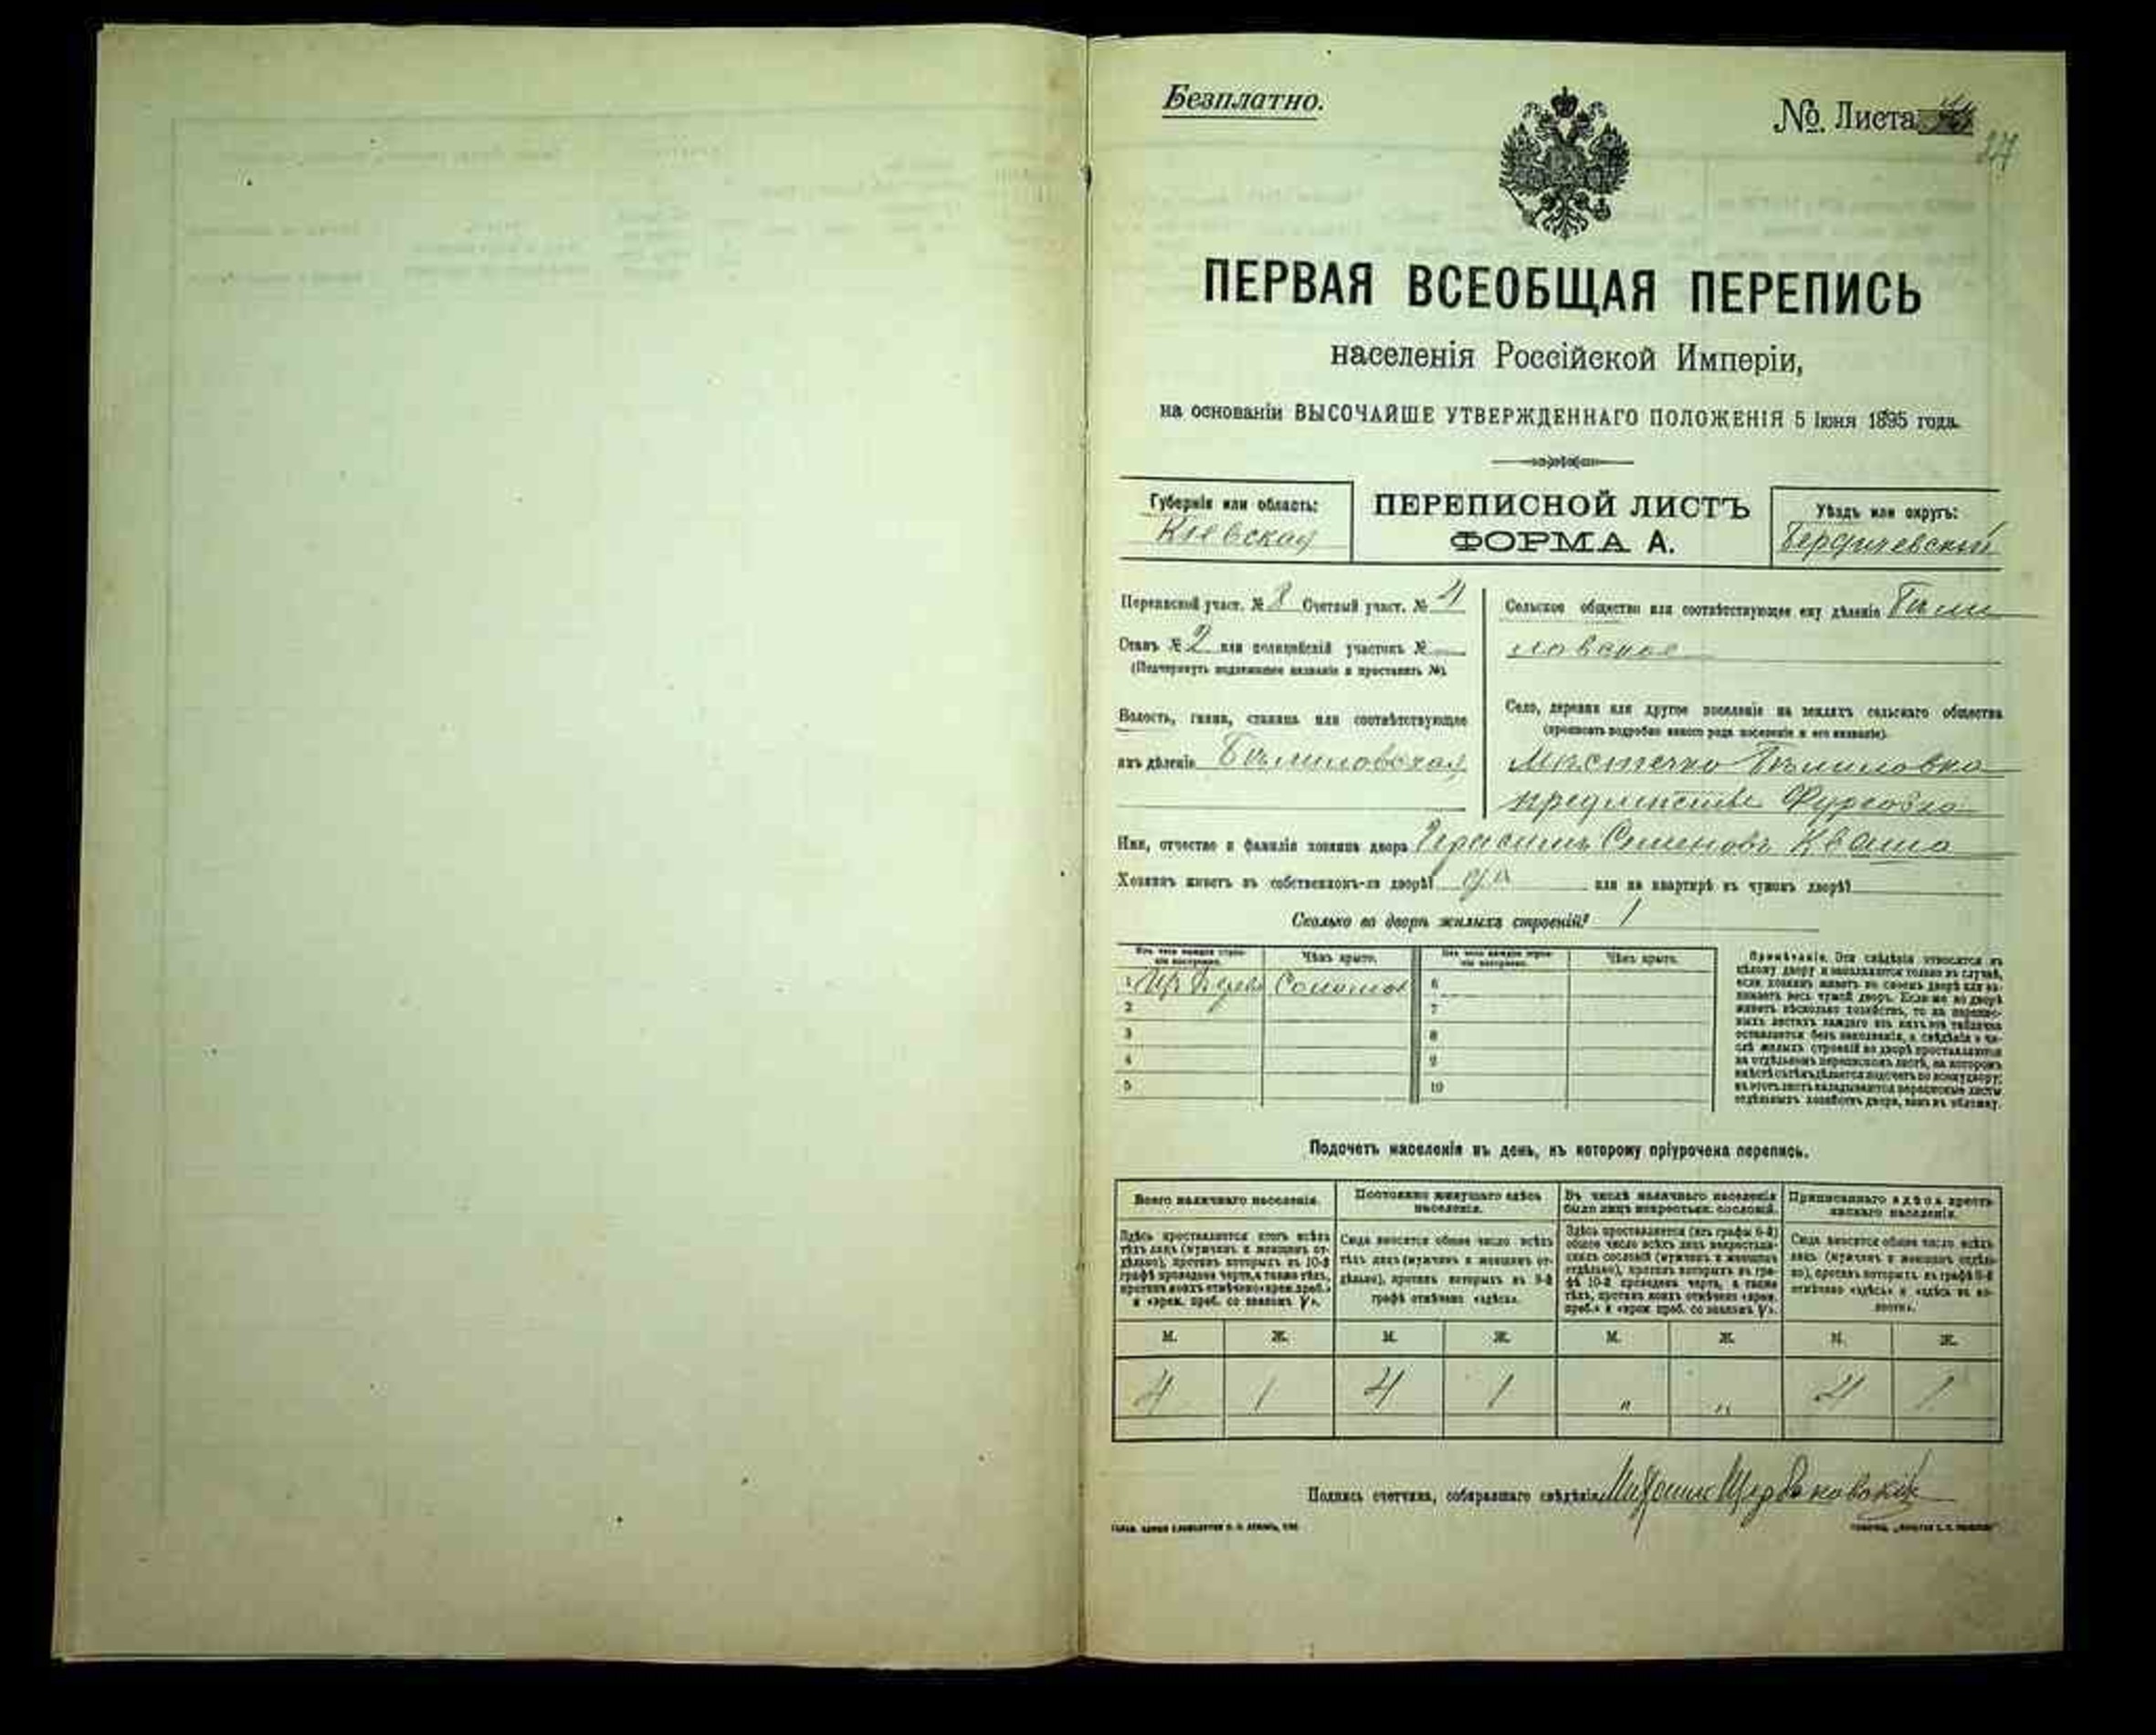 Безплатно.
№ Листа
27
ПЕРВАЯ ВСЕОБЩАЯ ПЕРЕПИСЬ
населенія Россійской Имперіи,
на основаніи ВЫСОЧАЙШЕ УТВЕРЖДЕННАГО ПОЛОЖЕНІЯ 5 Іюня 1895 года.
Губернія или область:
Кіевская
ПЕРЕПИСНОЙ ЛИСТЪ
ФОРМА А.
Уѣздъ или округъ:
Бердичевскій
Переписной участ. № 8 Счетный участ. № 4
Станъ № 2 или полицейскій участокъ №
(Подчеркнуть подлежащее названіе и проставить №).
Волость, гмина, станица или соотвѣтствующее
имъ дѣленіе Бѣлиловская
Сельское общество или соотвѣтствующее ему дѣленіе Бѣли
ловское
Село, деревня или другое поселеніе на земляхъ сельскаго общества
(прописать подробно какого рода поселеніе и его названіе).
Мѣстечко Бѣлиловка
предмѣстье Фурсовка
Имя, отчество и фамилія хозяина двора Герасимъ Семеновъ Кваша
Хозяинъ живетъ въ собственномъ-ли дворѣ? да или на квартирѣ въ чужомъ дворѣ?
Сколько во дворѣ жилыхъ строеній? 1
Изъ чего каждое строеніе построено.
Чѣмъ крыто.
Изъ чего каждое строеніе построено.
Чѣмъ крыто.
1 Изъ дерева Соломой 6
2 7
3 8
4 9
5 10
Примѣчаніе. Эти свѣдѣнія относятся къ
цѣлому двору и заполняются только въ случаѣ,
если хозяинъ живетъ въ своемъ дворѣ или за-
нимаетъ весь чужой дворъ. Если же во дворѣ
живетъ нѣсколько хозяйствъ, то на перепис-
ныхъ листахъ каждаго изъ нихъ эта табличка
оставляется безъ заполненія, а свѣдѣнія о чи-
слѣ жилыхъ строеній во дворѣ проставляются
на отдѣльномъ переписномъ листѣ, на которомъ
вмѣстѣ съ тѣмъ дѣлается подсчетъ по всему двору;
въ этотъ листъ вкладываются переписные листы
отдѣльныхъ хозяйствъ двора, какъ въ обложку.
Подсчетъ населенія въ день, къ которому пріурочена перепись.
Всего наличнаго населенія.
Здѣсь проставляется итогъ всѣхъ
тѣхъ лицъ (мужчинъ и женщинъ от-
дѣльно), противъ которыхъ въ 10-й
графѣ проведена черта, а также тѣхъ,
противъ коихъ отмѣчено «врем. преб.»
и «врем. преб. со знакомъ V».
Постоянно живущаго здѣсь
населенія.
Сюда вносится общее число всѣхъ
тѣхъ лицъ (мужчинъ и женщинъ от-
дѣльно), противъ которыхъ въ 9-й
графѣ отмѣчено «здѣсь».
Въ числѣ наличнаго населенія
было лицъ некрестьян. сословій.
Здѣсь проставляется (изъ графы 6-й)
общее число всѣхъ лицъ некрестьян-
скихъ сословій (мужчинъ и женщинъ
отдѣльно), противъ которыхъ въ гра-
фѣ 10-й проведена черта, а также
тѣхъ, противъ коихъ отмѣчено «врем.
преб.» и «врем. преб. со знакомъ V».
Приписаннаго здѣсь кресть-
янскаго населенія.
Сюда вносится общее число всѣхъ
лицъ (мужчинъ и женщинъ отдѣль-
но), противъ которыхъ въ графѣ 8-й
отмѣчено «здѣсь» и «здѣсь въ во-
лости».
М. Ж. М. Ж. М. Ж. М. Ж.
4 1 4 1 " " 4 1
Подпись счетчика, собиравшаго свѣдѣнія Щербаковскій